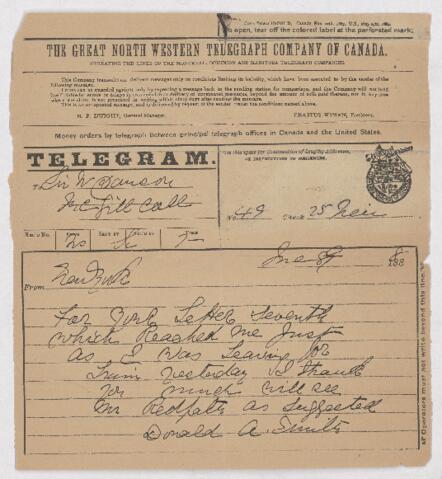 To open, tear off the colored label at the perforated mark;
THE GREAT NORTH WESTERN TELEGRAPH COMPANY OF CANADA.
OPERATING THE LINES OF THE MONTREAL, DOMINION AND MANITOBA TELEGRAPH COMPANIES.
This Company transmits and delivers messages only on conditions limiting its liability, which have been assented to by the sender of the
following message.
H. P. DWIGHT, General Manager.
ERASTUS WIMAN, President.
Money orders by telegraph between principal telegraph offices in Canada and the United States.
TELEGRAM.
To Sir W Dawson
McGill Coll
No. 49
25
June 8 188
From New York
For your letter seventh
which reached me just
as I was leaving for
train yesterday I thank
you much will see
Mr Redpath as suggested
Donald A. Smith
Operators must not write beyond this line.